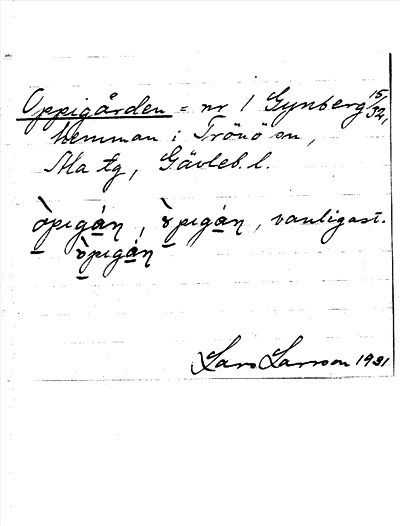 Oppigården = nr 1 Gynberg 15/32,
hemman i Trönö sn,
Ala tg, Gävleb. l.
òpigán, òpigán, vanligast.
òpigán
Lars Larsson 1931